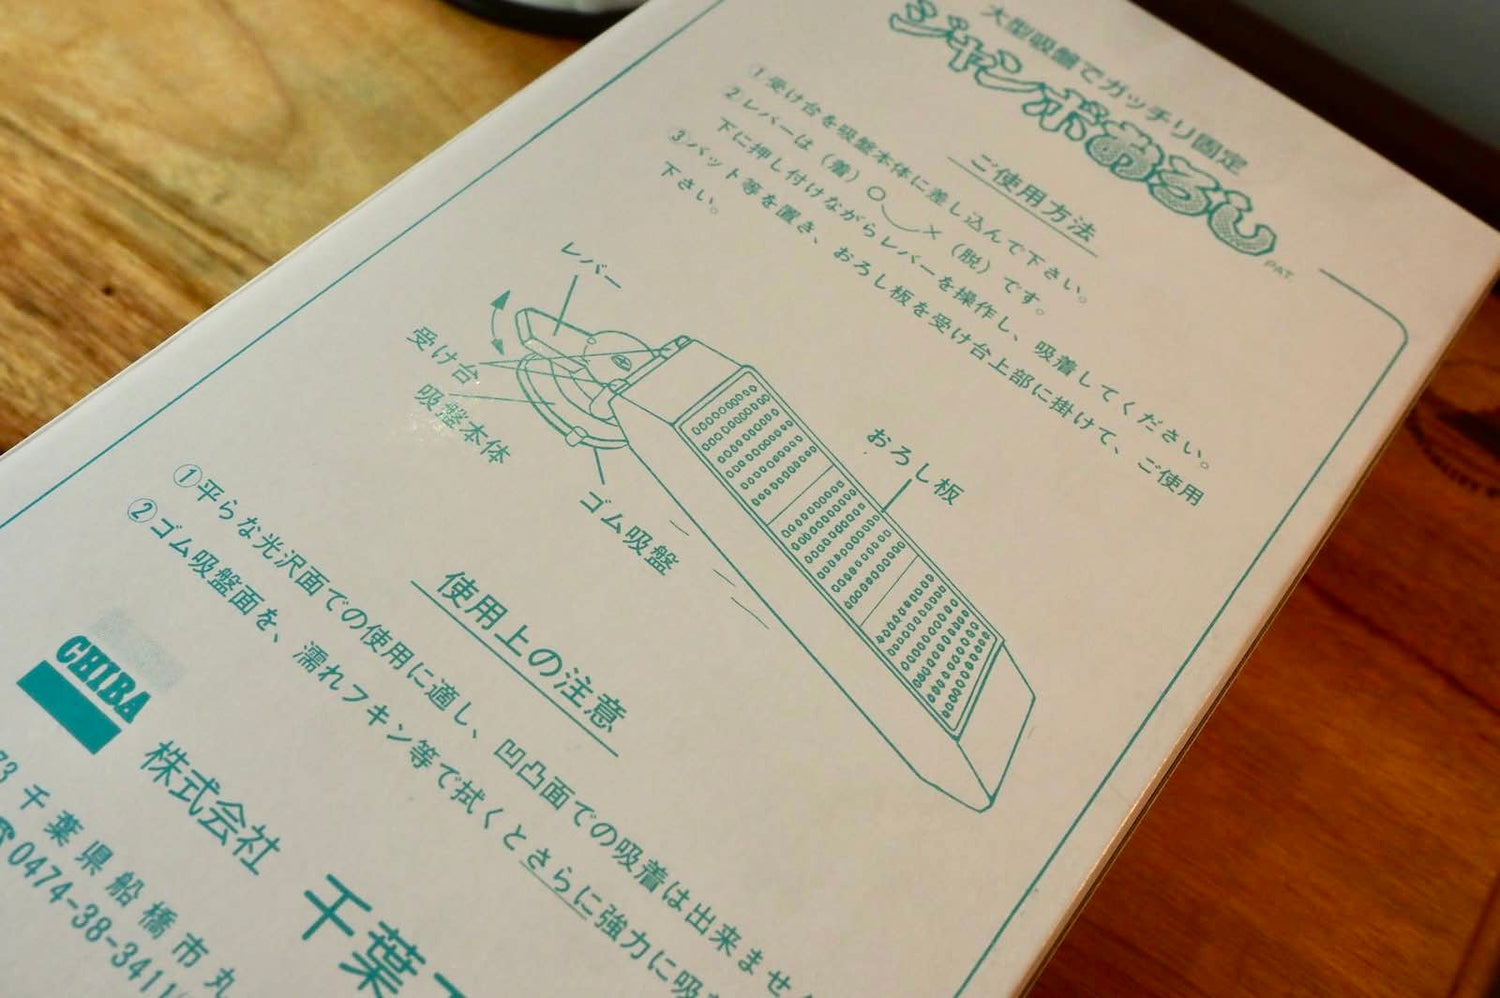 大型吸盤でガッチリ固定
ジャンボおろし
PAT.
ご使用方法
①受け台を吸盤本体に差し込んで下さい。
②レバーは(着)○ ×(脱)です。
下に押し付けながらレバーを操作し、吸着してください。
③バット等を置き、おろし板を受け台上部に掛けて、ご使用
下さい。
レバー
受け台
吸盤本体
ゴム吸盤
おろし板
使用上の注意
①平らな光沢面での使用に適し、凹凸面での吸着は出来ませ
②ゴム吸盤面を、濡れフキン等で拭くとさらに強力に吸
CHIBA
株式会社 千葉
73 千葉県船橋市丸
☎0474-38-341